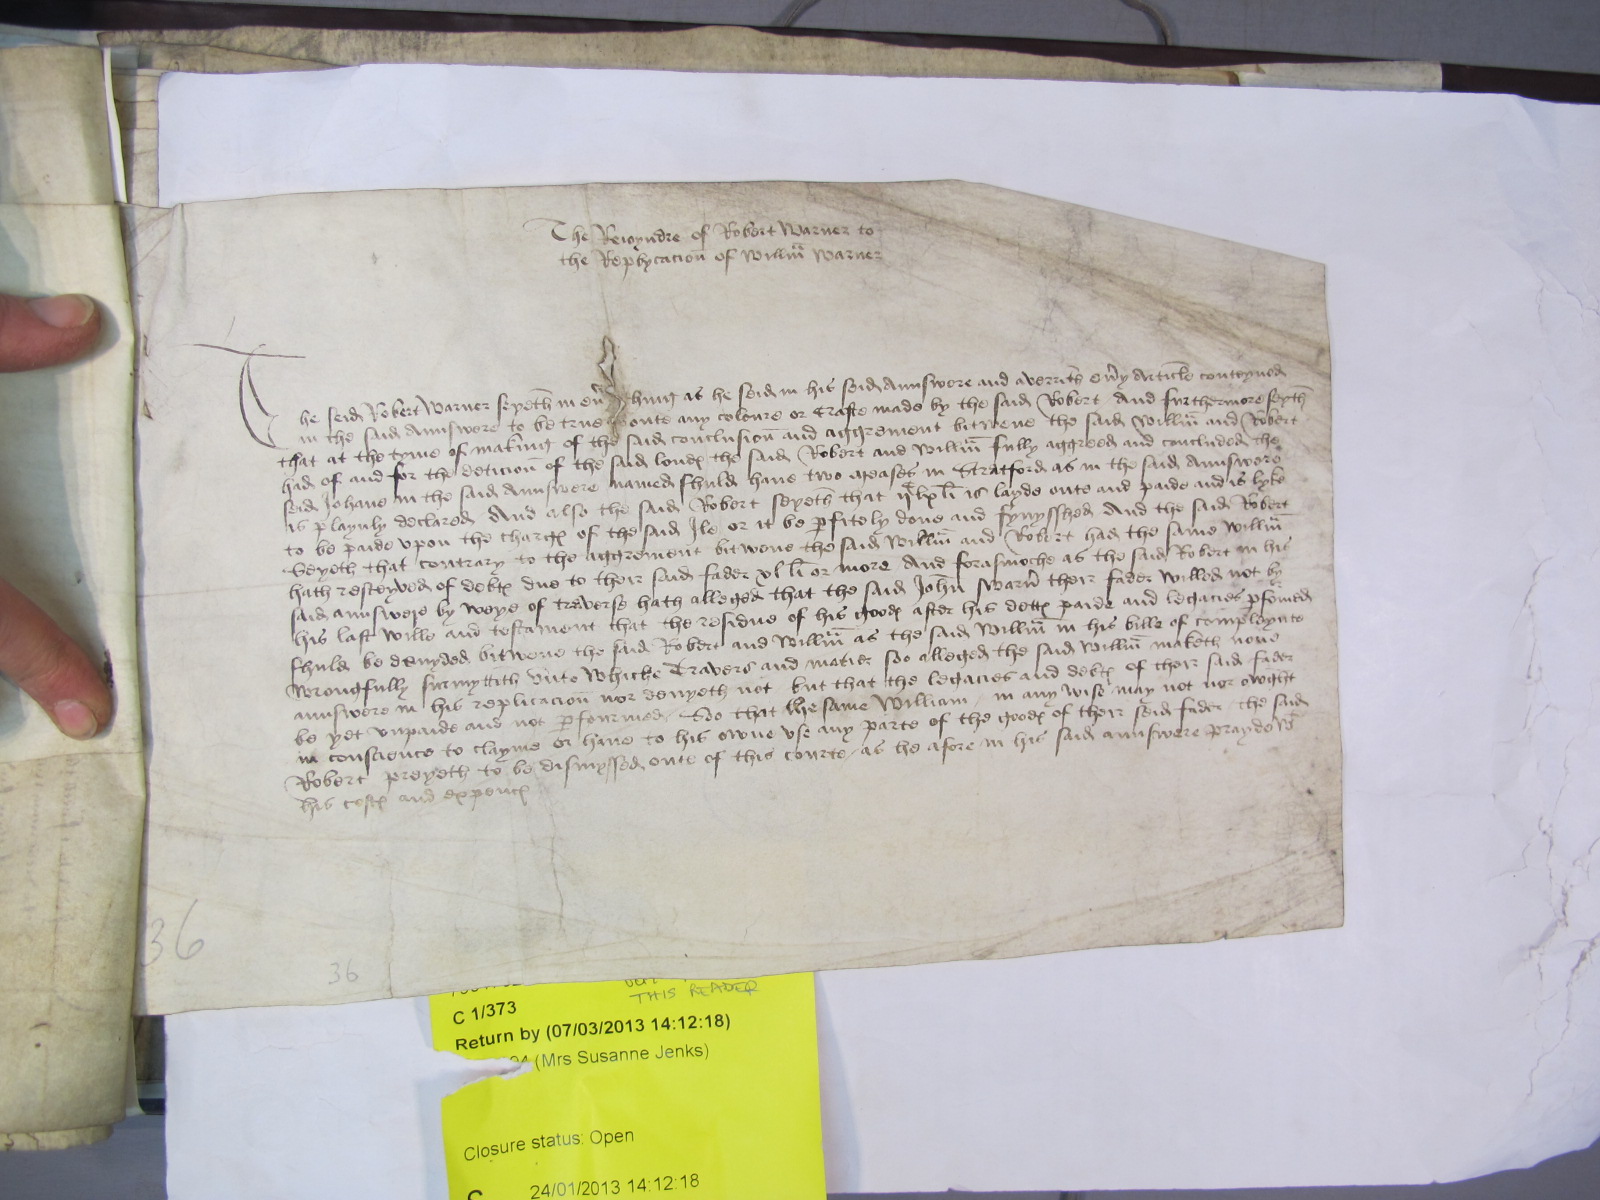 The Reioyndre of Robert Warner to
the Replycacion of Willm Warner
The seid Robert Warner seyeth in eny thing as he seid in his seid Aunswere and averrith eny Article conteyned
in the said Aunswere to be true oute any coloure or Crafte made by the said Robert And furthermore seyth
that at the tyme of making of the said conclusion and aggrement bitwene the said Willm and Robert
had of and for the peticion of the said londes the said Robert and Willm fully aggreed and concluded the
seid Johane in the said Aunswere named shuld have two meases in Stratford as in the said Aunswere
is playnly declared And also the said Robert seyeth that li is layde oute and paide and is lyke
to be paide vpon the charges of the said Ile or it be pfitely done and fynysshed And the said Robert
Seyeth that contrary to the aggrement bitwene the said Willm and Robert had the same Willm
hath resceyved of dettes due to their said fader xl li or more And forasmoche as the said Robert in his
said aunswere by weye of traverse hath alleged that the said John Warner their fader willed not by
his last wille and testament that the residue of his goodes after his dettes paide and legacies pfomed
shuld be devyded bitwene the said Robert and Willm as the said Willm in his bille of complaynte
wrongfully surmyttith vnto Whiche Travers and matier soo alleged the said Willm maketh none
aunswere in his replicacion nor denyeth not but that the legacies and dettes of their said fader
be yet vnpaide and not pfourmed Soo that the same William in any wise may not nor owght
in conscience to clayme or have to his owne vse any parte of the goodes of their seid fader the said
Robert preyeth to be dismyssed oute of this courte as he afore in his said aunswere prayde wt
his costes and expences
36
36
THIS READER
C 1/373
Return by (07/03/2013 14:12:18)
(Mrs Susanne Jenks)
Closure status: Open
C 24/01/2013 14:12:18